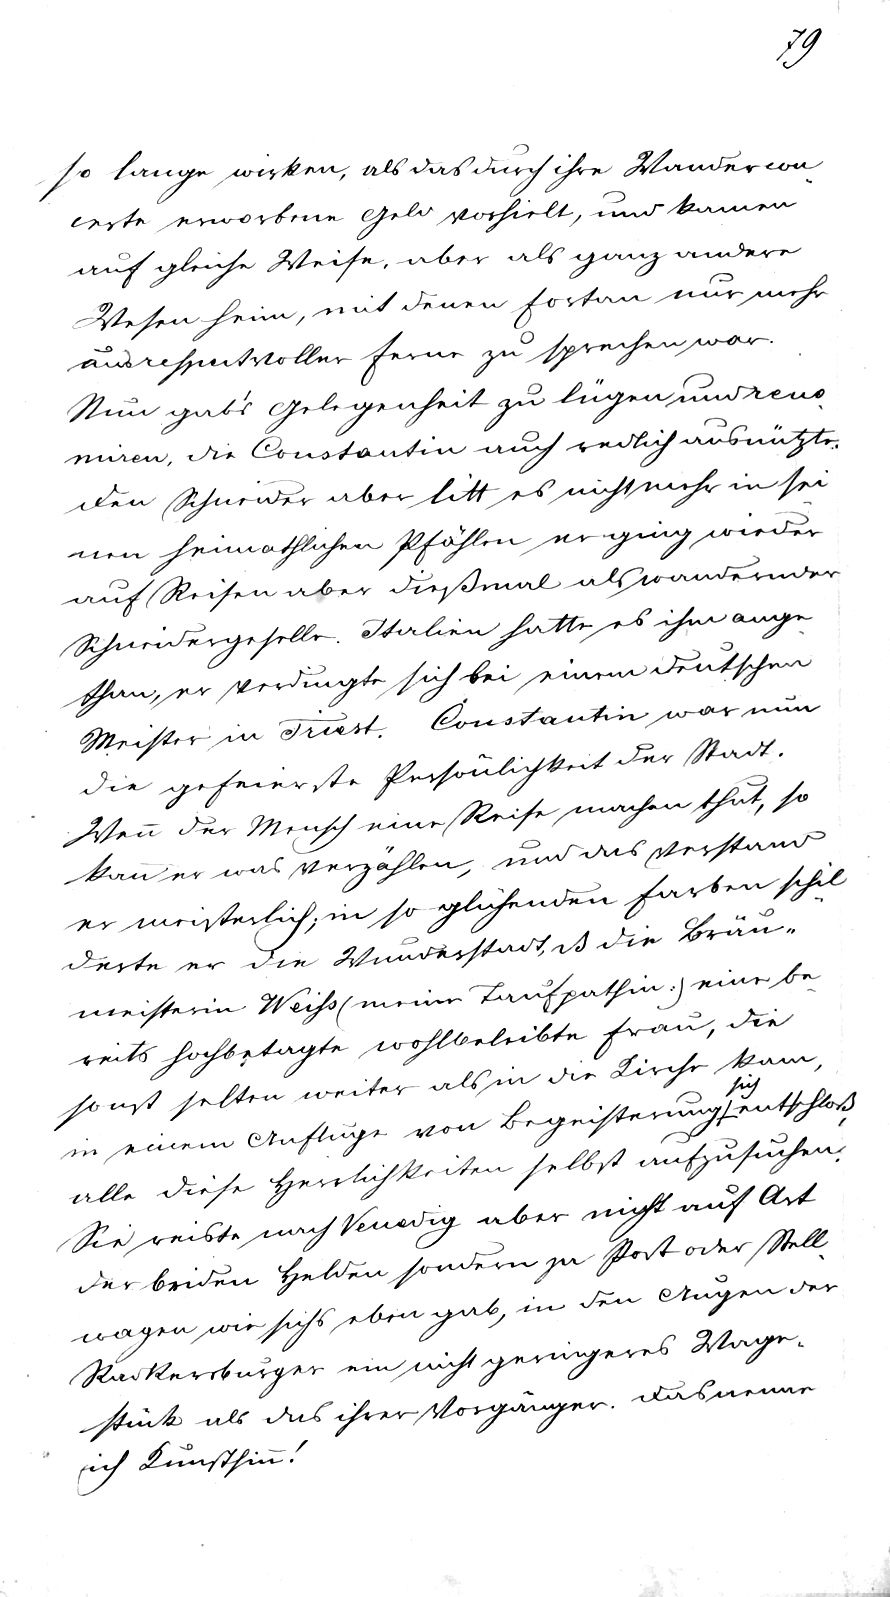 79
so lange wirken, als das durch ihre Wandercon-
certe erworbene Geld vorhielt, und kamen
auf gleiche Weise, aber als ganz andere
Wesen heim, mit denen fortan nur mehr
aus respectvoller Ferne zu sprechen war.
Nun gab's Gelegenheit zu lügen und reno-
miren, die Constantin auch redlich ausnützte.
Den Schneider aber litt es nicht mehr in sei-
nen heimathlichen Pfählen er ging wieder
auf Reisen aber dießmal als wandernder
Schneidergeselle. Italien hatte es ihm ange-
than, er verdingte sich bei einem deutschen
Meister in Triest. Constantin war nun
die gefeierste Persönlichkeit der Stadt.
Weñ der Mensch eine Reise machen thut, so
kañ er was verzählen, und das verstand
er meisterlich; in so glühenden Farben schil-
derte er die Wunderstadt, dß die Bräu-
meisterin Weiss (meine Taufpathin:) eine be-
reits hochbetagte wohlbeleibte Frau, die
sonst selten weiter als in die Kirche kam,
in einem Anfluge von Begeisterung sich entschloß,
alle diese Herrlichkeiten selbst aufzusuchen.
Sie reiste nach Venedig aber nicht auf Art
der beiden Helden sondern per Post oder Stell-
wagen wie sichs eben gab, in den Augen der
Radkersburger ein nicht geringeres Wage-
stück als das ihrer Vorgänger. Das nenne
ich Kunstsiñ!